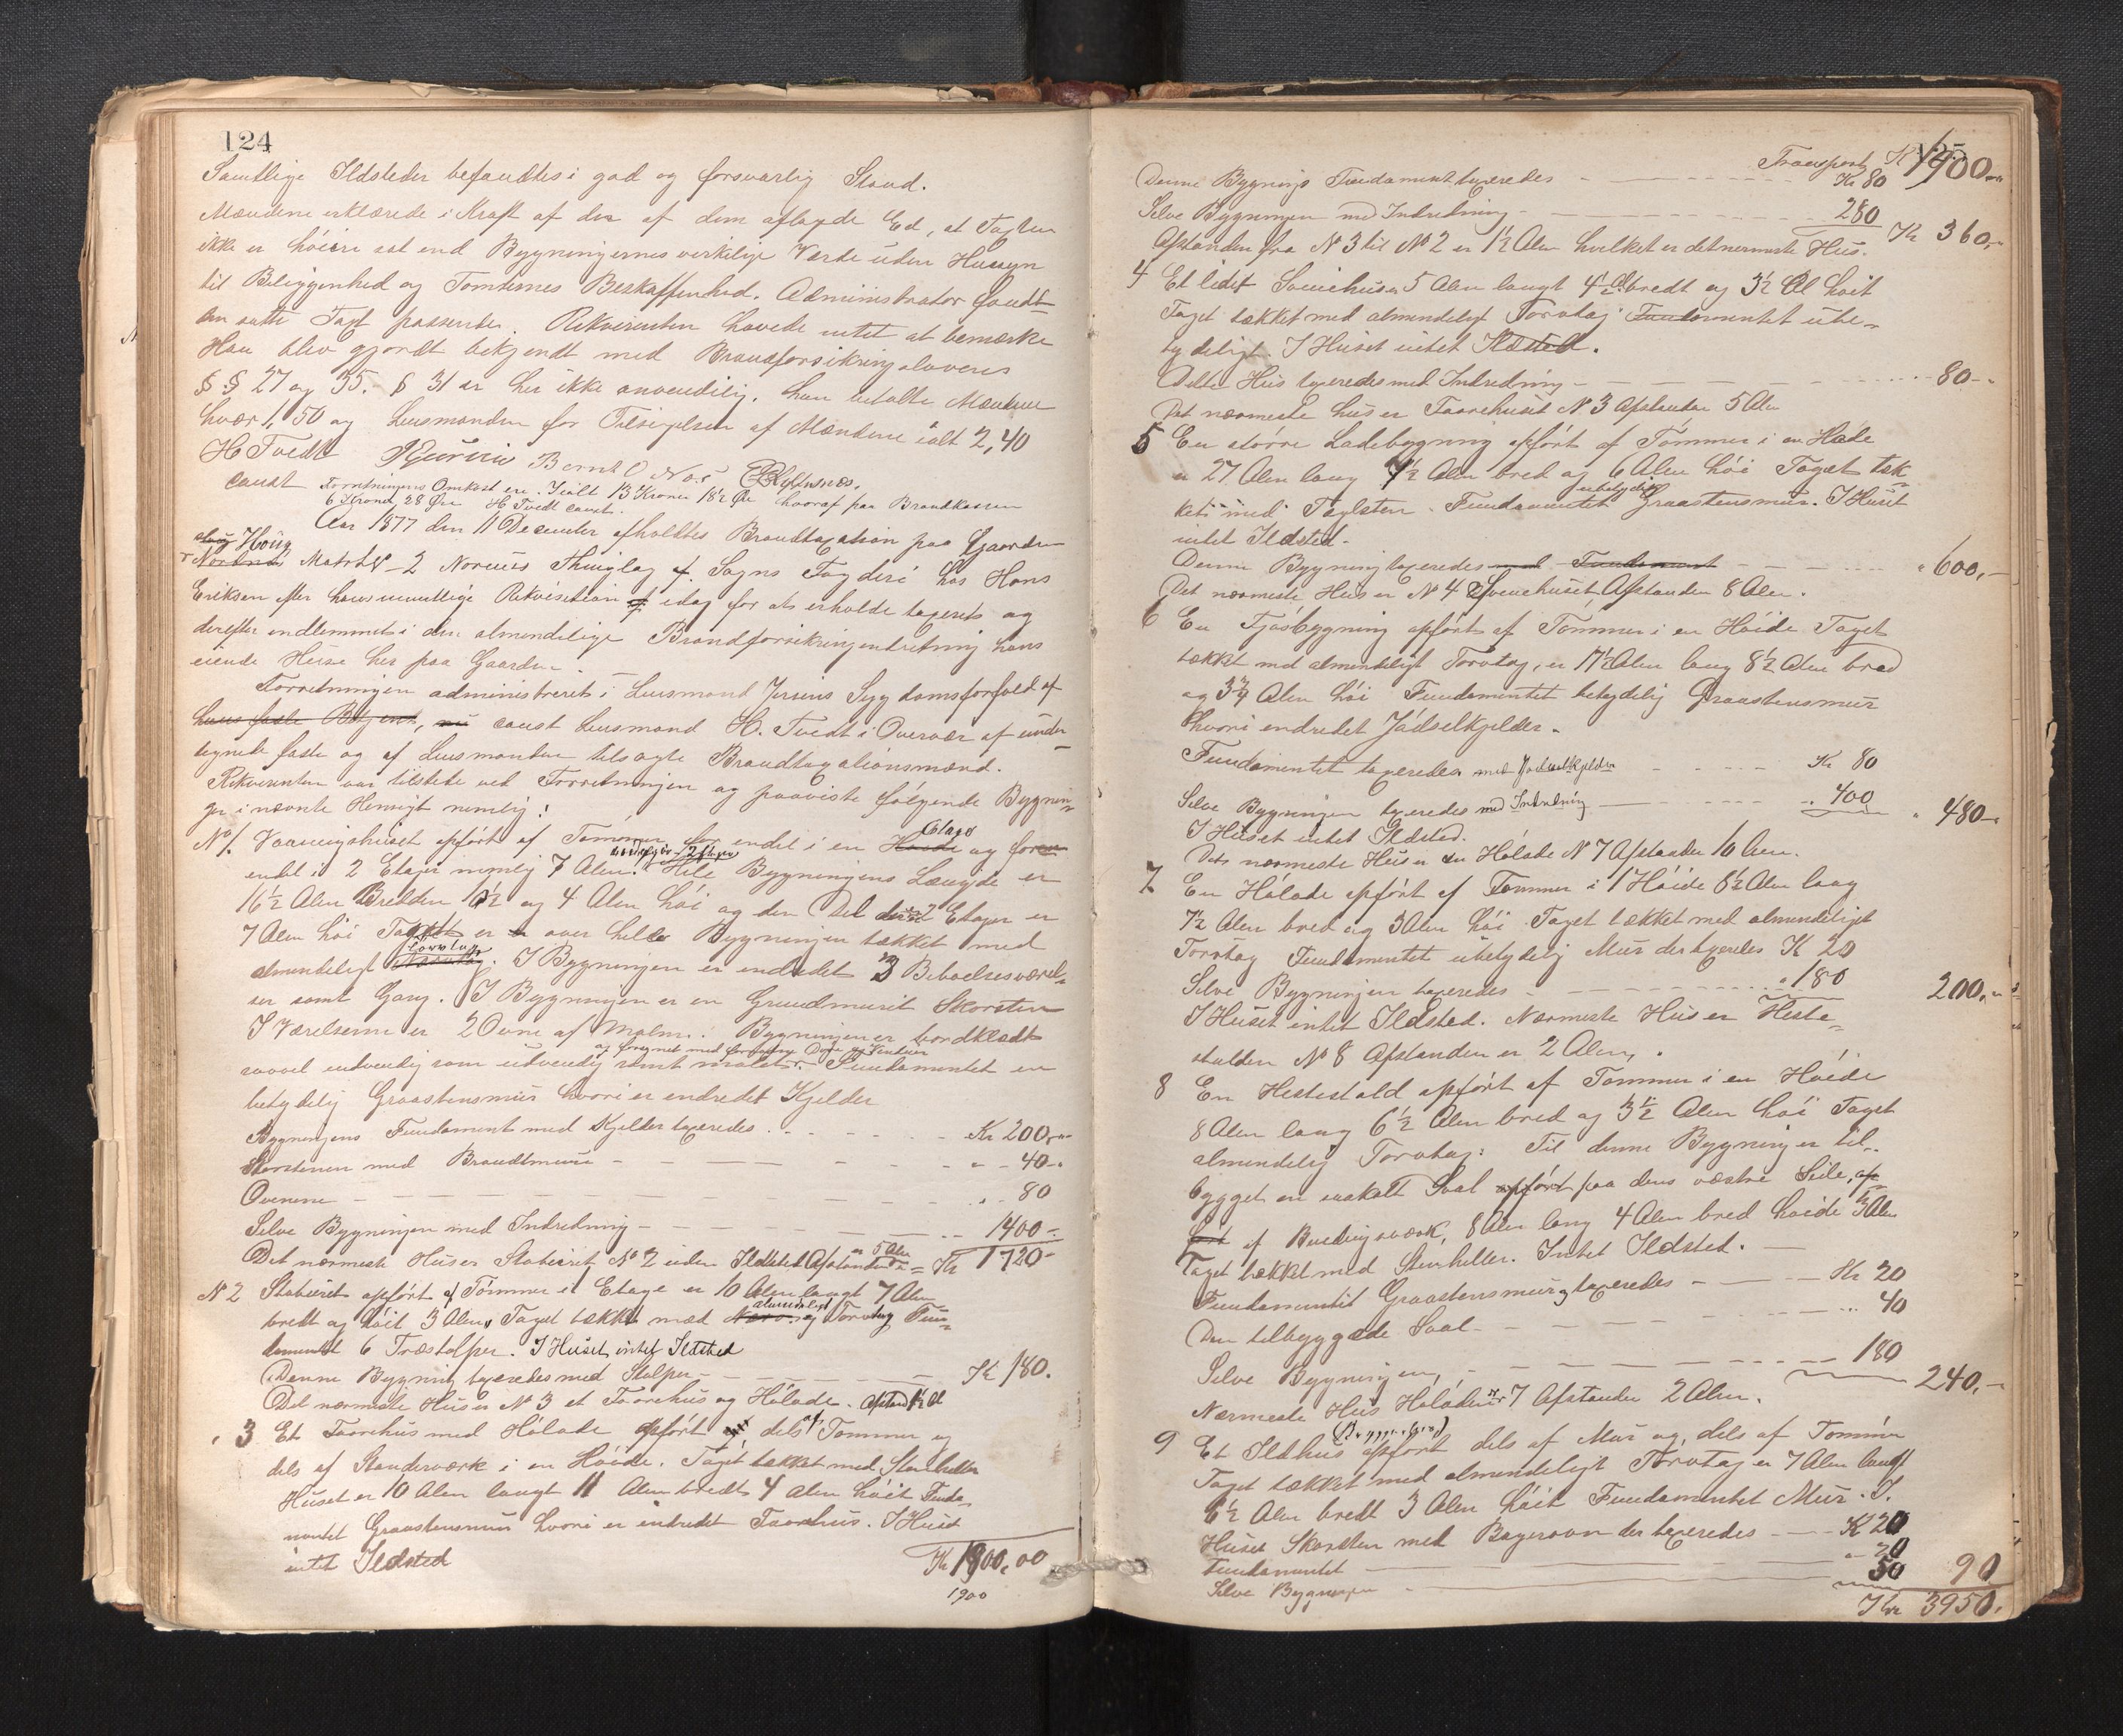 124
Samtlige Ildsteder befandtes i god og forsvarlig Stand.
Mændene erklærede i Kraft af den af dem aflagde Ed, at Taxten
ikke er höiere sat end Bygningernes virkelige Værdi uden Hensyn
til Beliggenhed og Tomternes Beskaffenhed. Administrator fandt
den satte Taxt passende. Rekvirenten havde intet at bemærke
Han blev gjordt bekjendt med Brandforsikringslovens
§ § 27 og 35. § 31 er her ikke anvendelig. Han betalte Mændene
hver 1,50 og Lensmanden for Tilsigelsen af Mændene ialt 2,40
H Tvedt Bernt O
const
Forretningens Omkost ere. Ialt 13 Kroner 18½ Øre hvoraf paa Brandkassen
6 Kroner 28 Øre H Tvedt const.
Aar 1877 den 11 December afholdtes Brandtaxation paa Gaarden
Houg
Matr No 2 Thinglag Sogns Fogderi hos Hans
Eriksen efter hans mundtlige Rekvisition idag for at erholde taxerets og
derefter indlemmet i den almindelige Brandforsikringsindretning hans
eiende Huse her paa Gaarden.
Forretningen administreret i Lensmand Jersins Sygdomsforfald af
hans faste Betjent, nu const Lensmand H. Tvedt i Overvær af under-
tegnede faste og af Lensmanden tilsagte Brandtaxationsmænd.
Rekvirenten var tilstede ved Forretningen og paaviste fölgende Bygnin-
ger i nævnte Hensigt nemlig:
No 1. Vaaningshuset opfört af Tömmer for endel i en Etage og foren
endel i 2 Etager nemlig 7 Alen. Hele Bygningens Længde er
16½ Alen Bredden og 4 Alen höi og den Del der er 2 Etager er
7 Alen höi Taget er over hele Bygningen tækket med
almindeligt Torvtag. I Bygningen er indredet 3 Beboelsesværel-
ser samt Gang. I Bygningen er en Grundmuret Skorsten
I Værelserne er 2 Ovne af Malm. Bygningen er bordklædt
og forsynet med Döre og Vinduer
saavel indvendig som udvendig samt malet. Fundamentet en
betydelig Graastensmur hvori er indredet Kjelder
Bygningens Fundament med Kjelder taxeredes - - - Kr 200,-
Skorstenen med Brandtmure - - - 40-
Ovnene - - - 80
Selve Bygningen med Indredning - - - 1400-
Det nærmeste Hus er Staburet No 2 uden Ildsted Afstanden er 5 Alen = Kr 1720-
No 2 Staburet opfört af Tömmer i 1 Etage er 10 Alen langt 7 Alen
bredt og höit 3 Alen, Taget tækket med almindeligt Torvtag Fun-
damentet 6 Træstolper. I Huset intet Ildsted
Denne Bygning taxeredes med Stolper - - - Kr 180.
Det nærmeste Hus er No 3 et Faarehus og Hölade. Afstand 1½ Al
3 Et Faarehus med Hölade opfört dels af Tömmer og
dels af Standerværk i en Höide. Taget tækket med Stenheller
Huset er 10 Alen langt 11 Alen bredt 4 Alen höit Funda-
mentet Graastensmur hvori er indredet Faarehus. I Huset
intet Ildsted
Kr 1900,00
1900
Transport Kr 1900,-
Denne Bygnings Fundament taxeredes - - - Kr 80
Selve Bygningen med Indredning - - - 280 Kr 360,-
Afstanden fra No 3 til No 2 er 1½ Alen hvilket er det nermeste Hus.
4 Et lidet Svinehus er 5 Alen langt 4½ Al bredt og 3½ Al höit
Taget tækket med almindeligt Torvtag Fundamentet ube-
tydeligt. I Huset intet Ildsted.
Dette Hus taxeredes med Indredning - - - 80-
Det nærmeste hus er Faarehuset No 3 Afstanden 5 Alen
5 En större Ladebygning opfört af Tömmer i en Höide
er 27 Alen lang 7½ Alen bred og 6 Alen höi Taget tæk-
ubetydelig
ket med Taglsten. Fundamentet Graastensmur. I Huset
intet Ildsted.
Denne Bygning taxeredes med Fundament - - - 600,-
Det nærmeste Hus er No 4 Svinehuset Afstanden 8 Alen.
6 En Fjösbygning opfört af Tömmer i en Höide Taget
tækket med almindeligt Torvtag, er 17½ Alen lang 8½ Alen bred
og 3¾ Alen höi Fundamentet betydelig Graastensmur
hvori indredet Gjödselkjelder.
Fundamentet taxeredes med Gjödselkjelder - - - Kr 80
Selve Bygningen taxeredes med Indredning - - - 400 480-
I Huset intet Ildsted.
Det nærmeste Hus er en Hölade No 7 Afstanden 10 Alen.
7 En Hölade opfört af Tömmer i 1 Höide 8½ Alen lang
7½ Alen bred og 3 Alen höi. Taget tækket med almindeligt
Torvtag Fundamentet ubetydelig Mur der taxeredes Kr 20
Selve Bygningen taxeredes - - - 180 200,-
I Huset intet Ildsted. Nærmeste Hus er Heste-
stalden No 8 Afstanden er 2 Alen.
8 En Hestestald opfört af Tömmer i en Höide
8 Alen lang 6½ Alen bred og 3½ Alen höi Taget
almindelig Torvtag. Til denne Bygning er til-
bygget en saakalt Sval opfört paa dens væstre Side, op-
fört af Bindingsværk, 8 Alen lang 4 Alen bred höide 3½ Alen
Taget tækket med Stenheller. Intet Ildsted.
Fundamentet Graastensmur taxeredes - - - Kr 20
Den tilbyggede Sval - - - 40
Selve Bygningen, - - - 180 240,-
Nærmeste Hus Höladen No 7 Afstanden 2 Alen.
9 Et Ildhus opfört dels af Mur og dels af Tömmer
Taget tækket med almindeligt Torvtag er 7 Alen langt
6½ Alen bredt 3 Alen höit Fundamentet Mur. I
Huset Skorsten med Bagerovn der taxeredes - - - Kr 20
Fundamentet - - - 20
Selve Bygningen - - - 50 90
Kr 3950.